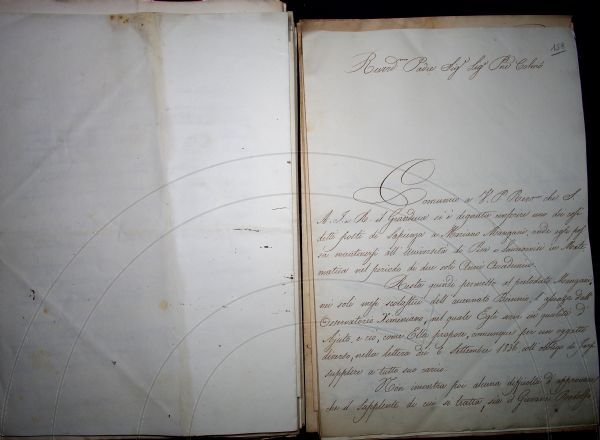 159
Rever̃d.mo Padre Sig.r Sig.r Pñe Col.mo
Comunico a V. P. Rev.ma che S.
A. I. e R. il Granduca si è degnata conferire uno dei così
detti posti di Sapienza a Mariano Mangani, onde egli pos
sa recarsi all'Università di Pisa a laurearsi in Mate
matica nel periodo di due soli Anni Accademici.
Resta quindi permesso al prelodato Mangani,
nei soli mesi scolastici dell'accennato Biennio, l'assenza dall'
Osservatorio Ximeniano, nel quale Egli serve in qualità di
Ajuto, e ciò, come Ella propose, comunque per uno oggetto
diverso, nella lettera de' 6 Settembre 1836, coll'obbligo di farsi
supplire a tutto suo carico.
Non incontra poi alcuna difficoltà d'approvare
che il supplente di cui si tratta, sia il Giovane Rodolfo